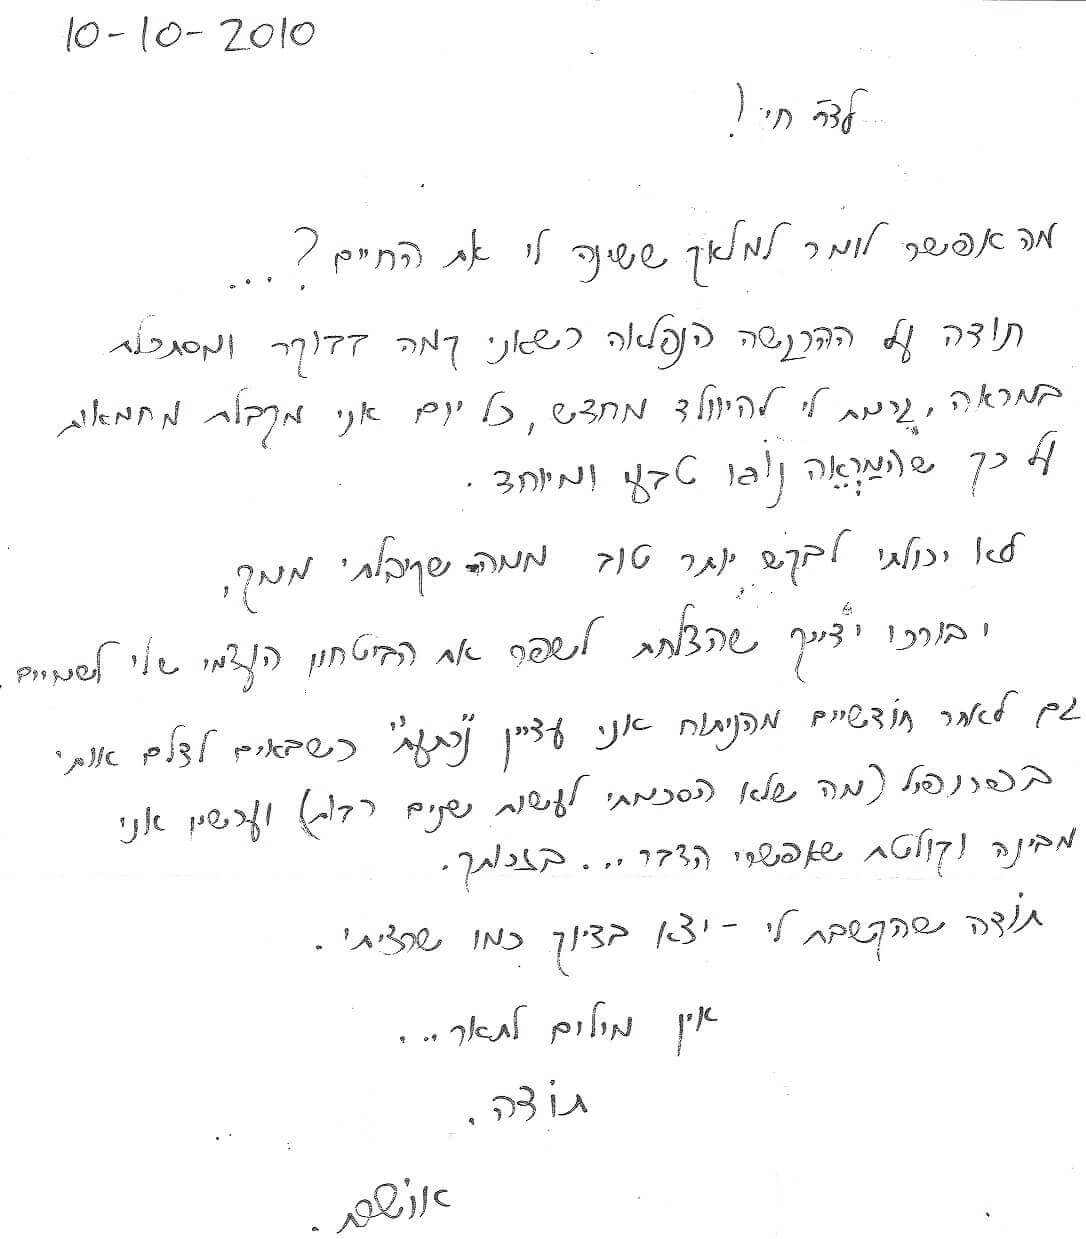 10-10-2010
לד"ר חי!
מה אפשר לומר למלאך ששינה לי את החיים?...
תודה על ההרגשה הנפלאה כשאני קמה בבוקר ומסתכלת
במראה, גרמת לי להיוולד מחדש, כל יום אני מקבלת מחמאות
על כך שהמַרְאֶה נוֹגּו טבעי ומיוחד.
לא יכולתי לבקש יותר טוב ממה שקיבלתי ממך,
יבורכו ידייך שהצלחת לשפר את הביטחון העצמי שלי לשמיים.
גם לאחר חודשיים מהניתוח אני עדיין "נרתעת" כשבאים לצלם אותי
בפרופיל (מה שלא הסכמתי לעשות שנים רבות) ועכשיו אני
מבינה וקולטת שאפשרי הדבר... בזכותך.
תודה שהקשבת לי - יצא בדיוק כמו שרציתי.
אין מילים לתאר...
תודה.